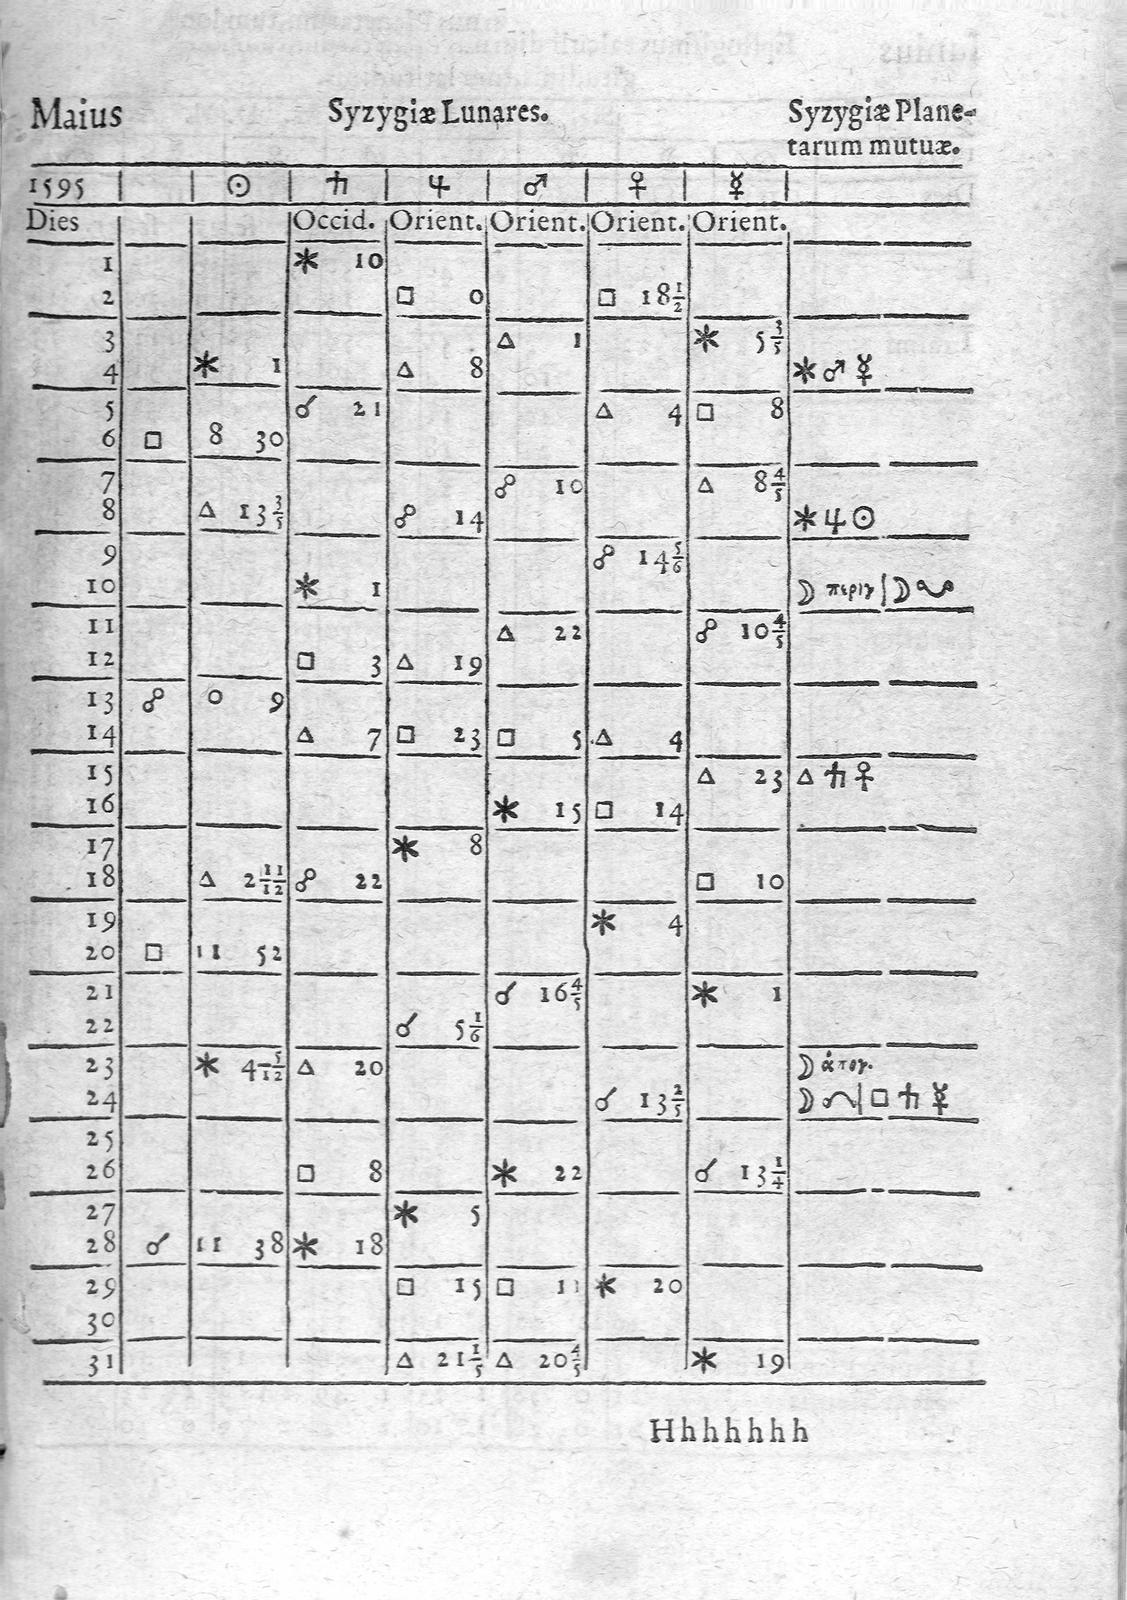 Maius Syzygiæ Lunares. Syzygiæ Plane-
tarum mutuæ.
1595 ☉ ♄ ♃ ♂ ♀ ☿
Dies Occid. Orient. Orient. Orient. Orient.
1 ⚹ 10
2 □ 0 □ 18 1/2
3 △ 1 ⚹ 5 3/5
4 ⚹ 1 △ 8 ⚹ ♂ ☿
5 ☌ 21 △ 4 □ 8
6 □ 8 30
7 ☍ 10 △ 8 4/5
8 △ 13 3/5 ☍ 14 ⚹ ♃ ☉
9 ☍ 14 5/6
10 ⚹ 1 ☽ περιγ | ☽ ☋
11 △ 22 ☍ 10 4/5
12 □ 3 △ 19
13 ☍ 0 9
14 △ 7 □ 23 □ 5 △ 4
15 △ 23 △ ♄ ♀
16 ⚹ 15 □ 14
17 ⚹ 8
18 △ 2 11/12 ☍ 22 □ 10
19 ⚹ 4
20 □ 11 52
21 ☌ 16 4/5 ⚹ 1
22 ☌ 5 1/6
23 ⚹ 4 5/12 △ 20 ☽ ἀπογ.
24 ☌ 13 2/5 ☽ ☊ | □ ♄ ☿
25
26 □ 8 ⚹ 22 ☌ 13 1/4
27 ⚹ 5
28 ☌ 11 38 ⚹ 18
29 □ 15 □ 11 ⚹ 20
30
31 △ 21 1/5 △ 20 4/5 ⚹ 19
Hhhhhhh